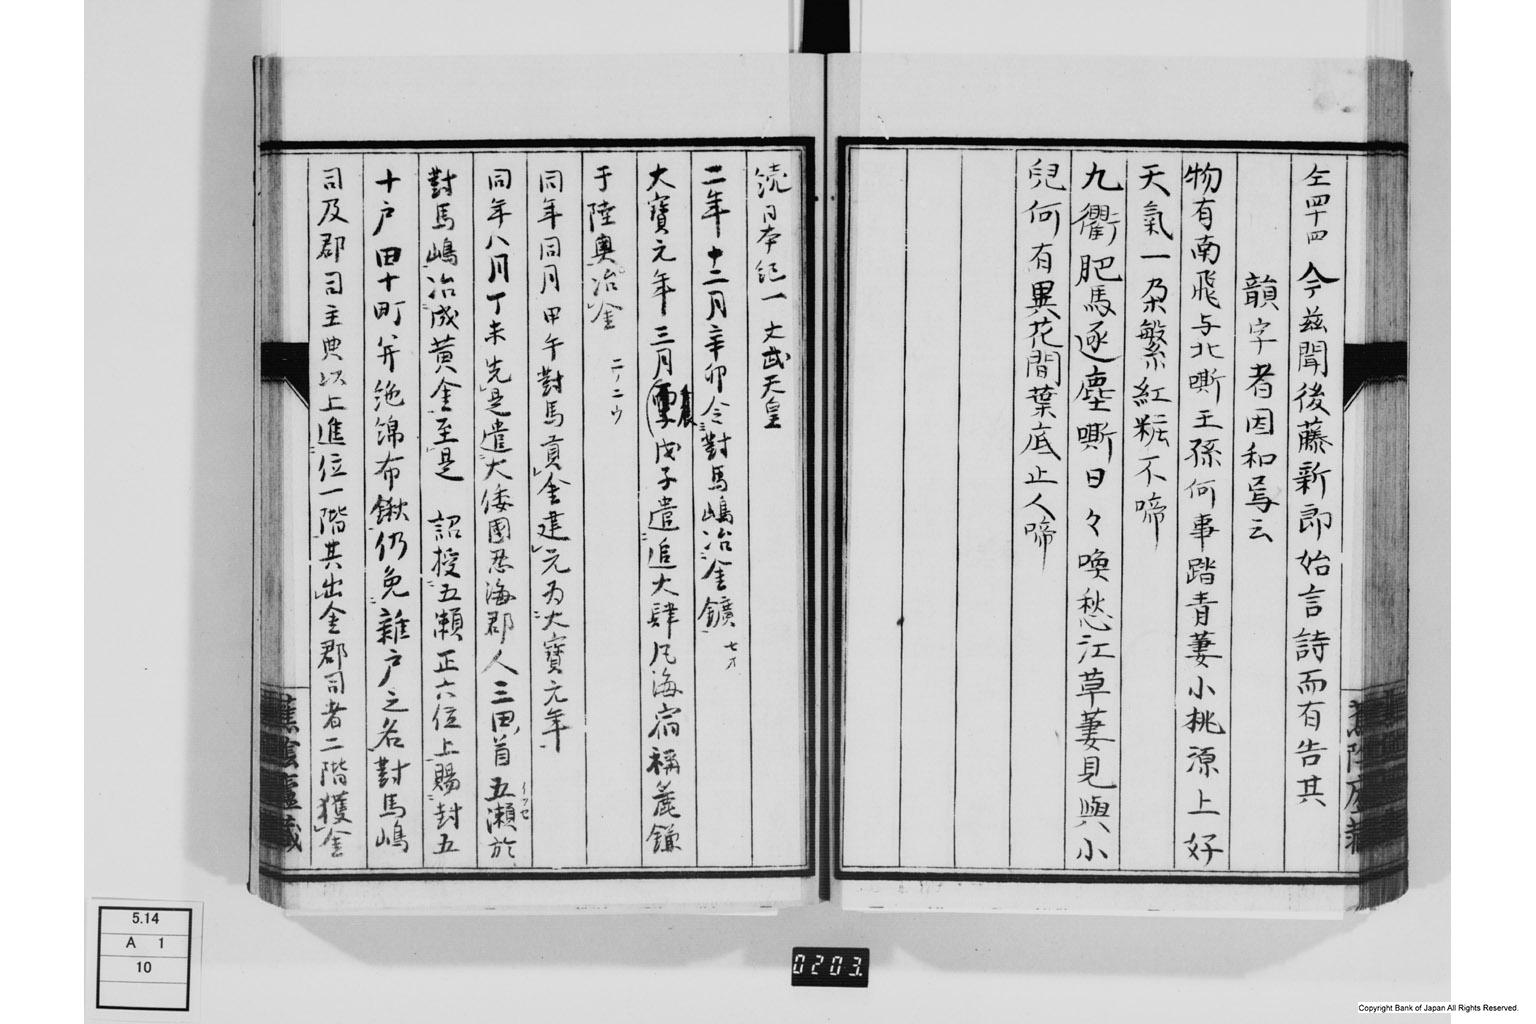 仝四十四 今茲聞後藤新郎始言詩而有告其
韻字者因和写云
物有南飛与北嘶王孫何事踏青萋小桃源上好
天氣一朶繁紅粧不啼
九衢肥馬逐塵嘶日々喚愁江草萋見與小
兒何有異花間葉底止人啼
続日本紀一 文武天皇
二年十二月辛卯令對馬嶋冶金鑛 七オ
大寶元年三月戊子遣追大肆凡海宿祢麁鎌
于陸奥冶金 二ノ二ウ
同年同月甲午對馬貢金建元為大寶元年
同年八月丁未先是遣大倭國忍海郡人三田首五瀬於
イツセ
對馬嶋冶成黄金至是 詔授五瀬正六位上賜封五
十戸田十町并絁綿布鍬仍免雜戸之名對馬嶋
司及郡司主典以上進位一階其出金郡司者二階獲金
蕉陰廬藏
5.14
A 1
10
0203.
Copyright Bank of Japan All Rights Reserved.